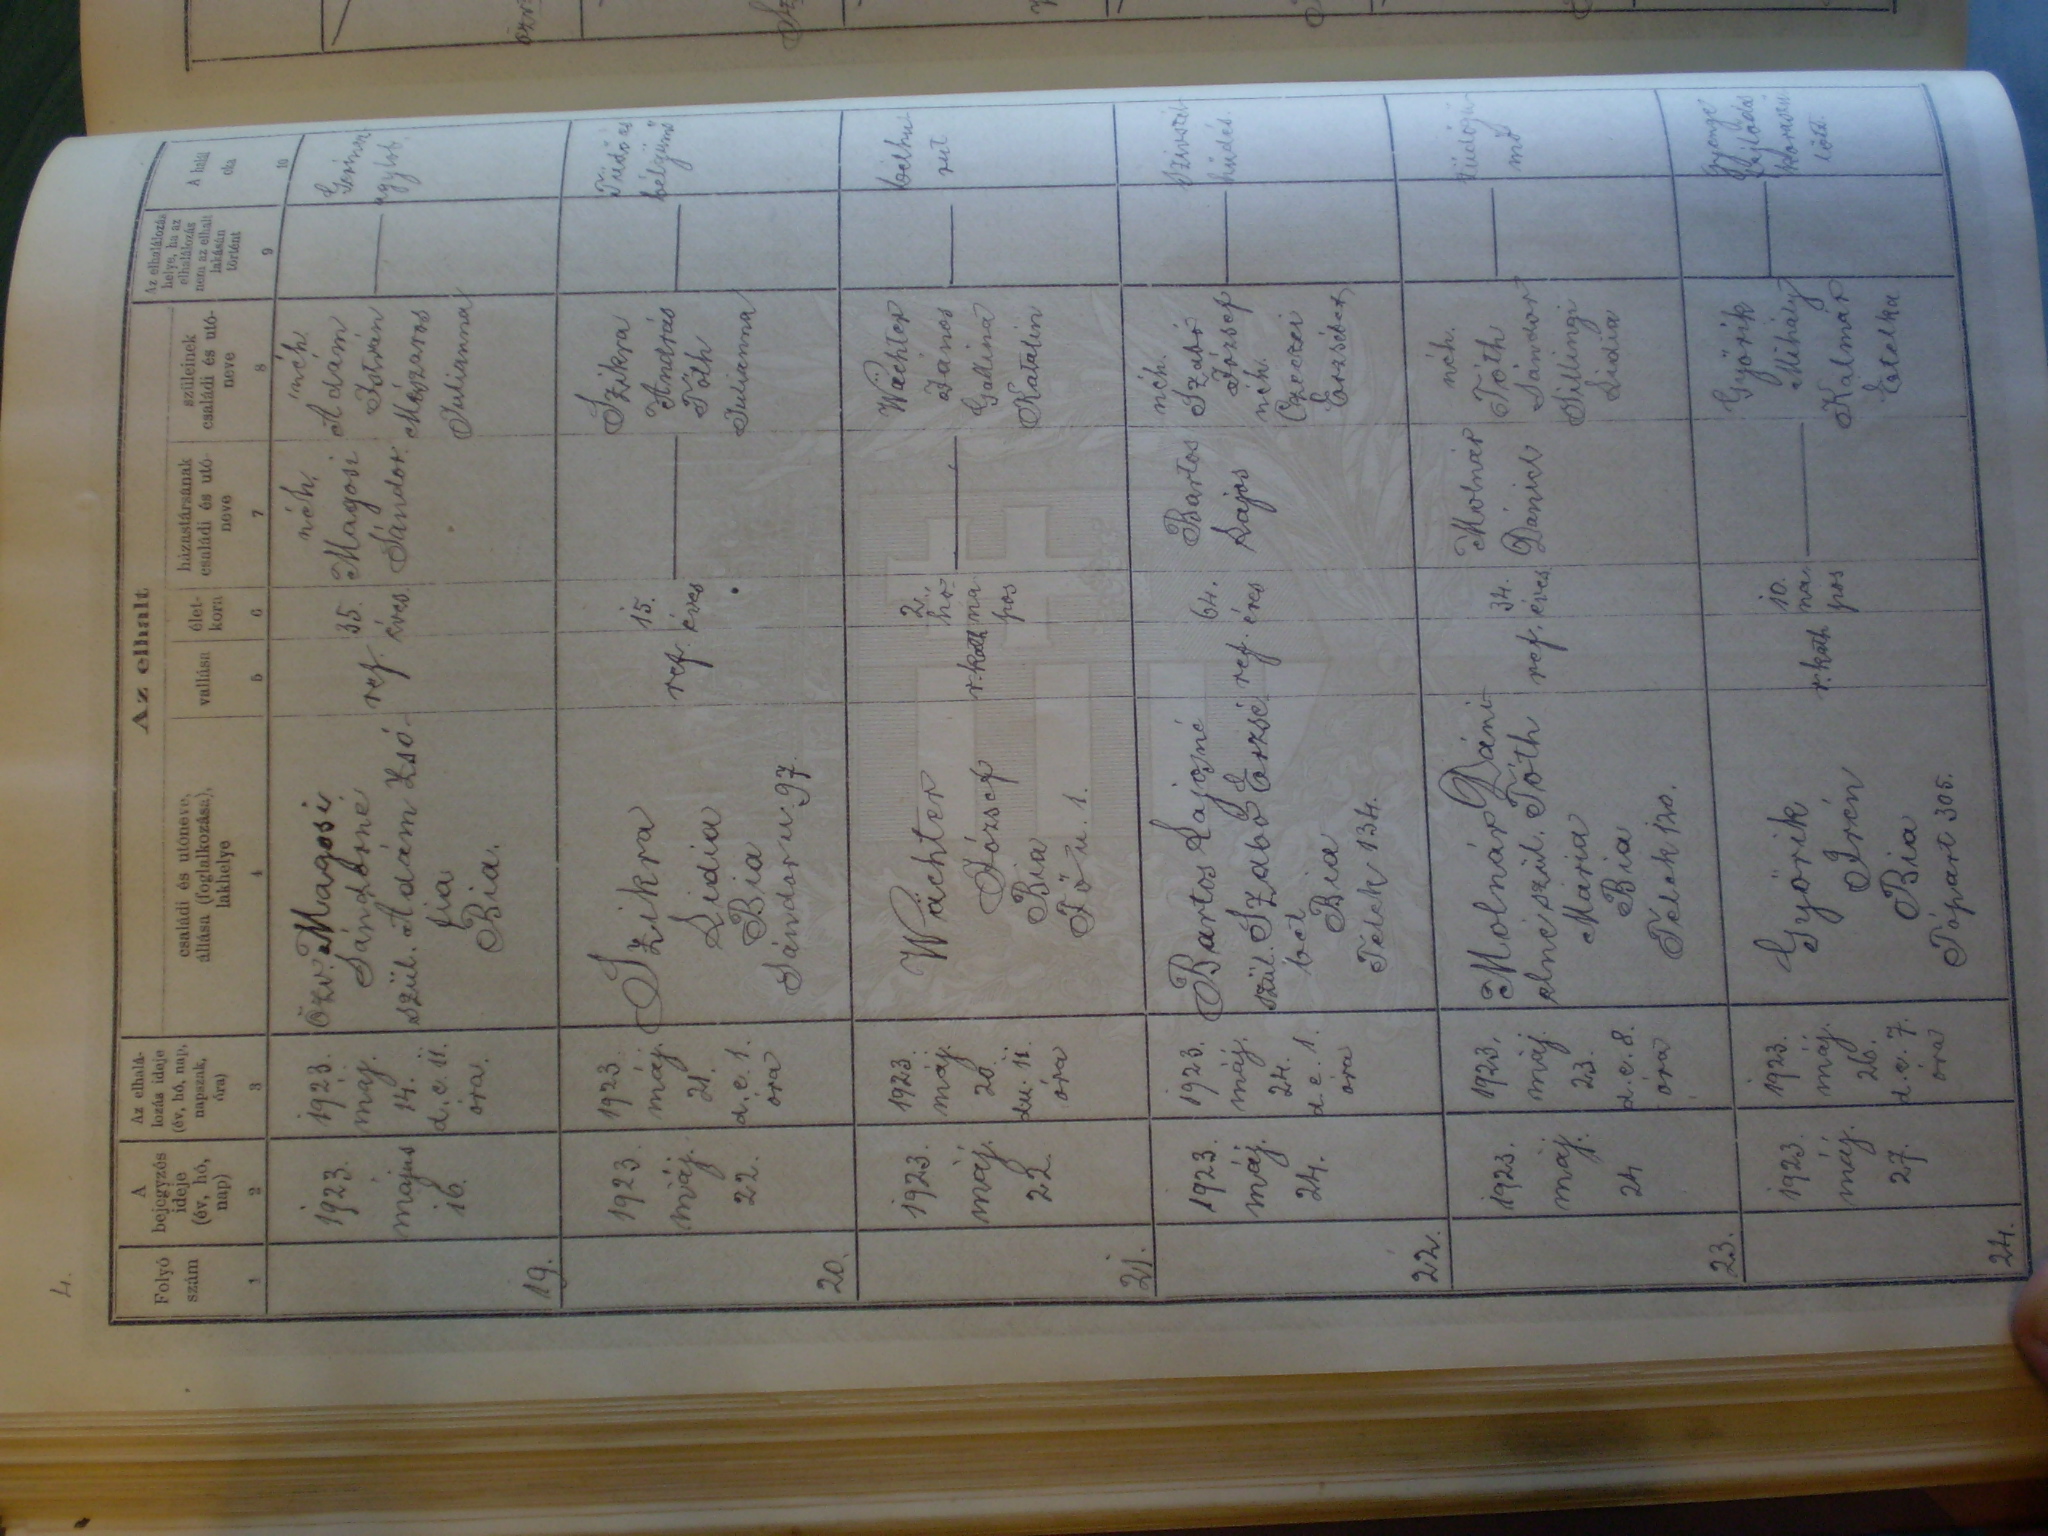 4.
Az elhalt
Folyó
szám
A
bejegyzés
ideje
(év, hó,
nap)
Az elhalá-
lozás ideje
(év, hó, nap,
napszak,
óra)
családi és utóneve,
állása (foglalkozása),
lakhelye
vallása
élet-
kora
házastársának
családi és utó-
neve
szüleinek
családi és utó-
neve
Az elhalálozás
helye, ha az
elhalálozás
nem az elhalt
lakásán
történt
A halál
oka
1
2
3
4
5
6
7
8
9
10
19.
1923.
május
16.
1923.
máj.
14.
d.e. 11.
óra.
Özv. Magosi
Sándorné
szül. Ádám Zsó-
fia
Bia.
ref.
35.
éves.
néh.
Magosi
Sándor.
néh.
Ádám
István
Mészáros
Julianna
20.
1923.
máj.
22.
1923.
máj.
21.
d.e. 1.
óra
Szikra
Lidia
Bia
Sándor u. 97.
ref.
15.
éves
Szikra
András
Tóth
Julianna
Tüdő és
bélgümő
21.
1923.
máj.
22.
1923.
máj.
20.
du. 11.
óra
Wachter
József
Bia
Fő u. 1.
r. kath
2.
hó
na
pos
Wachter
János
Gallina
Katalin
bélhu
rut
22.
1923.
máj.
24.
1923.
máj.
24.
d.e. 1.
óra
Bartos Lajosné
szül. Szabó Erzsé
bet
Bia
Telek 134.
ref.
64.
éves
Bartos
Lajos
néh.
Szabó
József
néh.
Erzsébet
szívszél
hűdés.
23.
1923.
máj.
24
1923.
máj
23.
d.e. 8.
óra
Molnár Dáni
elné szül. Tóth
Mária
Bia
Telek 120.
ref.
34.
éves
Molnár
Dániel
néh.
Tóth
Sándor
Sillingi
Lidia
tüdőgü
mő
24.
1923.
máj.
27.
1923.
máj.
26.
d.e. 7.
óra
Györik
Irén
Bia
Tópart 305.
r. kath
10.
na
pos
Györik
Mihály
Kalmár
Etelka
gyenge
fejlődés